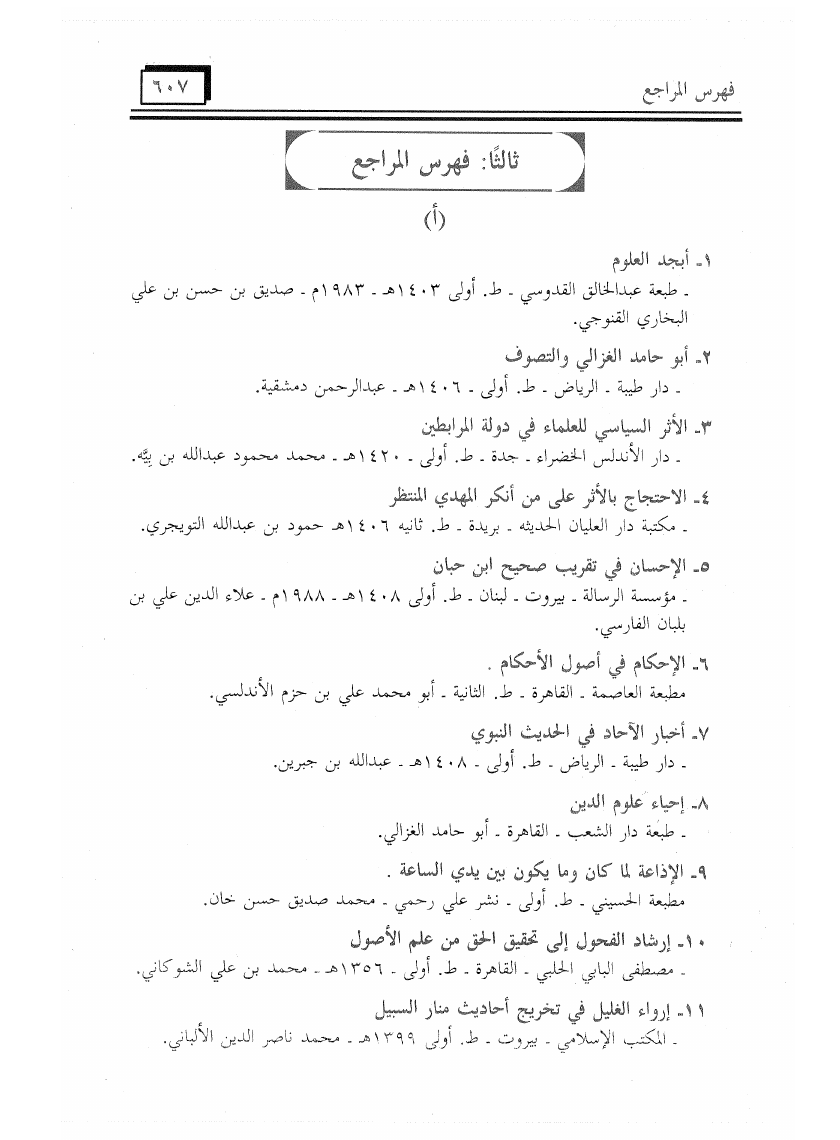 فهرس المراجع
٦٠٧
ثالثًا: فهرس المراجع
(أ)
١ـ أبجد العلوم
ـ طبعة عبدالخالق القدوسي ـ ط. أولى ١٤٠٣هـ ـ ١٩٨٣م ـ صديق بن حسن بن علي
البخاري القنوجي.
٢ـ أبو حامد الغزالي والتصوف
ـ دار طيبة ـ الرياض ـ ط. أولى ـ ١٤٠٦هـ ـ عبدالرحمن دمشقية.
٣ـ الأثر السياسي للعلماء في دولة المرابطين
ـ دار الأندلس الخضراء ـ جدة ـ ط. أولى ـ ١٤٢٠هـ ـ محمد محمود عبدالله بن بِيَّه.
٤ـ الاحتجاج بالأثر على من أنكر المهدي المنتظر
ـ مكتبة دار العليان الحديثه ـ بريدة ـ ط. ثانيه ١٤٠٦هـ حمود بن عبدالله التويجري.
٥ـ الإحسان في تقريب صحيح ابن حبان
ـ مؤسسة الرسالة ـ بيروت ـ لبنان ـ ط. أولى ١٤٠٨هـ ـ ١٩٨٨م ـ علاء الدين علي بن
بلبان الفارسي.
٦ـ الإحكام في أصول الأحكام .
مطبعة العاصمة ـ القاهرة ـ ط. الثانية ـ أبو محمد علي بن حزم الأندلسي.
٧ـ أخبار الآحاد في الحديث النبوي
ـ دار طيبة ـ الرياض ـ ط. أولى ـ ١٤٠٨هـ ـ عبدالله بن جبرين.
٨ـ إحياء علوم الدين
ـ طبعة دار الشعب ـ القاهرة ـ أبو حامد الغزالي.
٩ـ الإذاعة لما كان وما يكون بين يدي الساعة .
مطبعة الحسيني ـ ط. أولى ـ نشر علي رحمي ـ محمد صديق حسن خان.
١٠ـ إرشاد الفحول إلى تحقيق الحق من علم الأصول
ـ مصطفى البابي الحلبي ـ القاهرة ـ ط. أولى ـ ١٣٥٦هـ ـ محمد بن علي الشوكاني.
١١ـ إرواء الغليل في تخريج أحاديث منار السبيل
ـ المكتب الإسلامي ـ بيروت ـ ط. أولى ١٣٩٩هـ ـ محمد ناصر الدين الألباني.